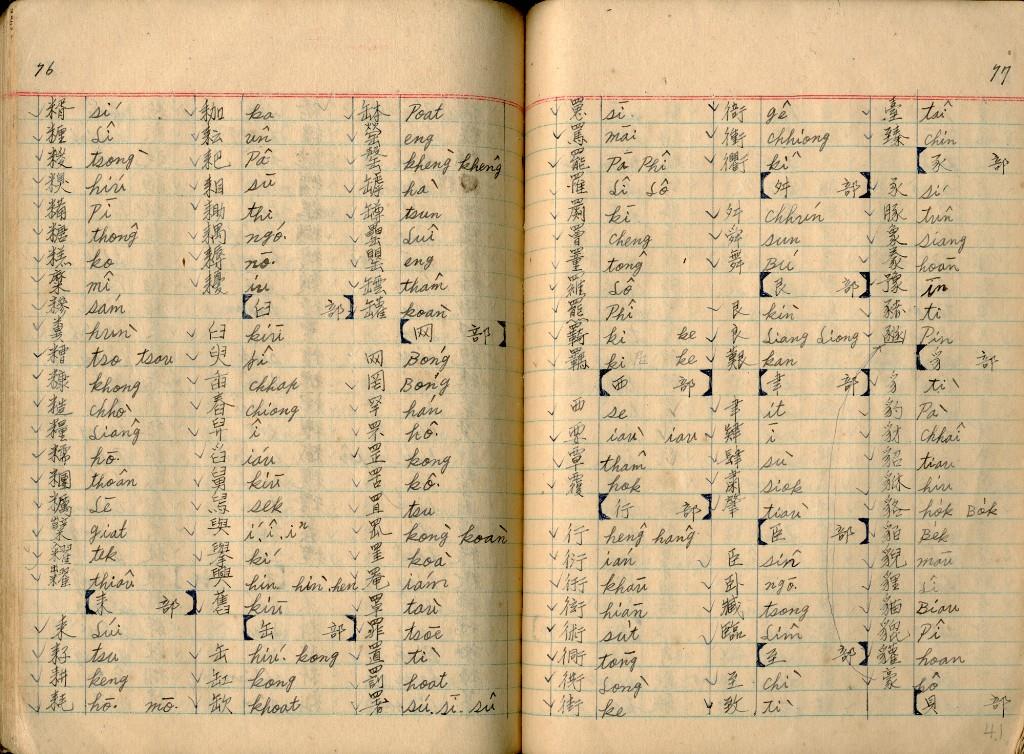 76
糈 sí
糎 Lî
糉 tsòng
糗 hiú
糒 Pī
糖 thông
糕 ko
糜 mî
糝 sám
糞 hùn
糟 tso tsau
糠 khong
糙 chhò
糧 Liâng
糯 hō.
糰 thoân
糲 Lē
糵 giat
糴 tek
糶 thiàu
耒 部
耒 Lúi
耔 tsu
耕 keng
耗 hō. mō.
耞 ka
耘 ûn
耙 Pâ
耜 sū
耡 thî
耦 ngó.
耨 nō.
耰 iu
臼 部
臼 kiū
兒 jî
臿 chhap
舂 chiong
舁 î
舀 iáu
舅 kiū
舄 sek
與 í.î.iⁿ
舉 kí
釁 hìn hìn.hen
舊 kiū
缶 部
缶 hiú. kong
缸 kong
缺 khoat
缽 Poat
罃 eng
罄 khèng khêng
罅 hà
罇 tsun
罍 Luî
罌 eng
罎 thâm
罐 koàn
网 部
网 Bóng
罔 Bóng
罕 hán
罘 hô.
罡 kong
罟 kô.
罝 tsu
罣 koà
罨 iám
罩 tàu
罪 tsōe
置 tì
罰 hoat
署 sú.sī.sû
77
罳 si.
罵 māi
罷 Pā Phî
罹 Lî Lô
罽 kī
罾 cheng
羅 Lô
羆 Phî
羇 ki ke
羈 ki ke
西 部
西 se
要 iàu iau
覃 thâm
覆 hok
行 部
行 hêng hâng
衍 ián
衎 khàu
衒 hiān
術 sut
衕 tōng
街 ke
衙 gê
衝 chhiong
衢 kî
舛 部
舛 chhún
舜 sùn
舞 Bú
艮 部
艮 kìn
良 Liâng Liông
艱 kan
聿 部
聿 it
肄 ī
肆 sù
肅 siok
肇 tiāu
臣 部
臣 sîn
臥 ngō.
臧 tsong
臨 Lîm
至 部
至 chì
致 tì
臺 tâi
臻 chin
豕 部
豕 sí
豚 tûn
象 siāng
豢 hoān
豫 īn
豬 ti
豳 Pin
豸 部
豸 tì
豹 Pà
豺 chhâi
貂 tiau
貅 hiu
貉 hók Bók
貊 Bék
貌 māu
貍 Lî
貓 Biâu
貔 Pî
貛 hoan
豪 hô
貝 部
41